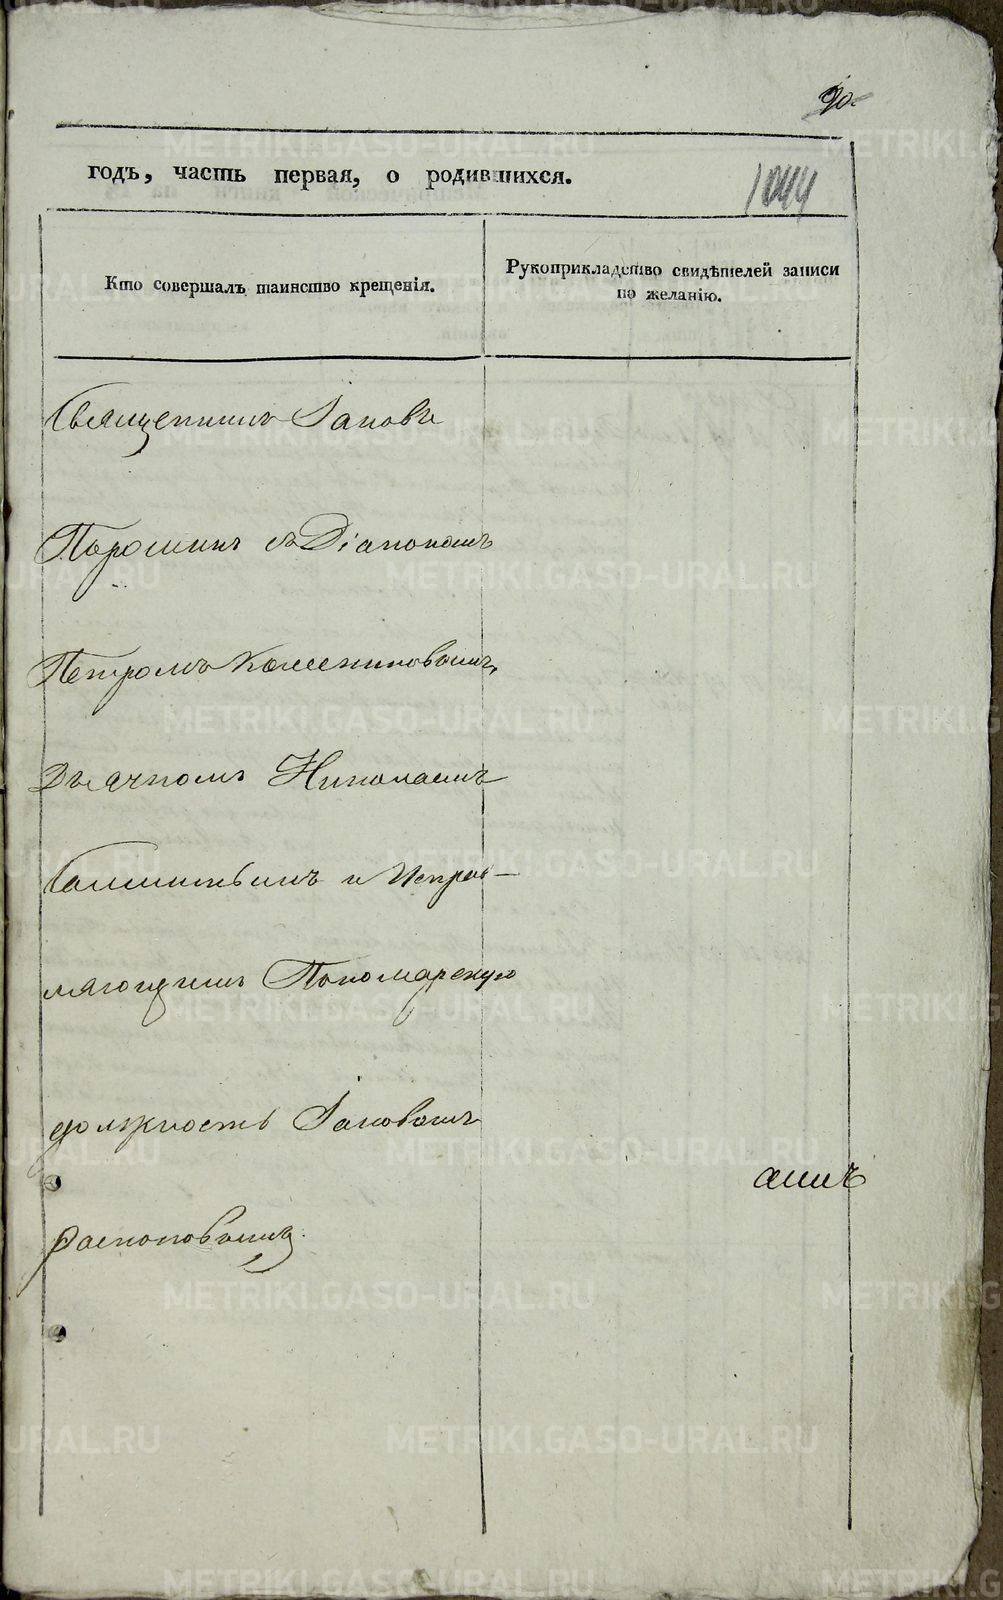 90
годъ, часть первая, о родившихся.
1044
Кто совершалъ таинство крещенія.
Рукоприкладство свидѣтелей записи
по желанію.
Священникъ Іаковъ
Порошинъ съ Діакономъ
Петромъ
Дьячкомъ Николаемъ
и Исправ-
ляющимъ Пономарскую
должность Іаковомъ
Распоповымъ.
METRIKI.GASO-URAL.RU